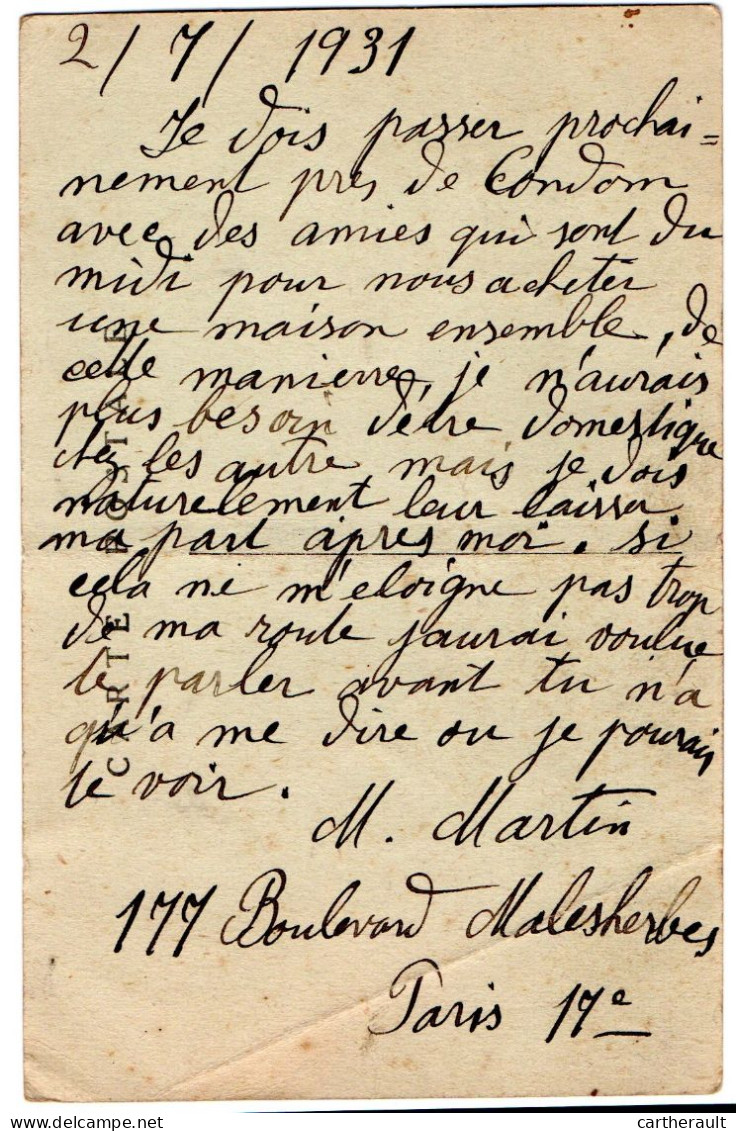 2/7/1931
Je dois passer prochai=
nement près de Condom
avec des amies qui sont du
midi pour nous acheter
une maison ensemble, de
cette manierre, je n'aurais
plus besoin d'être domestique
chez les autre mais je dois
naturelement leur laisser
ma part après moi. si
cela ne m'eloigne pas trop
de ma route j'aurai voulue
te parler avant tu n'a
qu'a me dire ou je pourais
te voir.
M. Martin
177 Boulevard Malesherbes
Paris 17e
CARTE POSTALE
cartherault